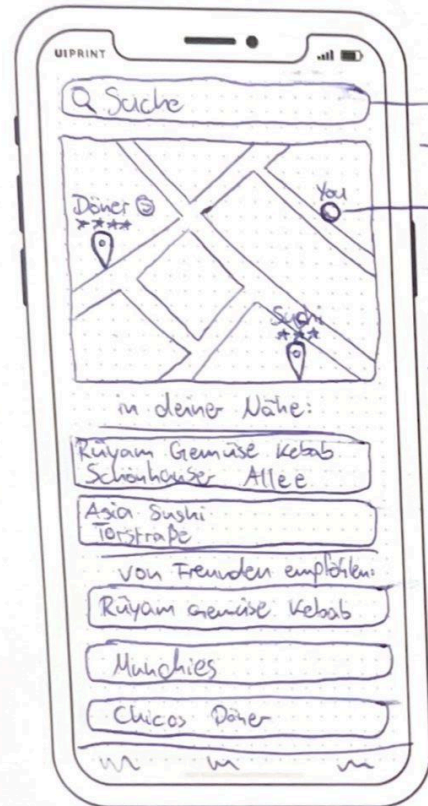 UIPRINT
Suche
You
Döner
Sushi
in deiner Nähe:
Rüyam Gemüse Kebab
Schönhauser Allee
Asia Sushi
Torstraße
von Freunden empfohlen:
Rüyam Gemüse Kebab
Munchies
Chicos Döner